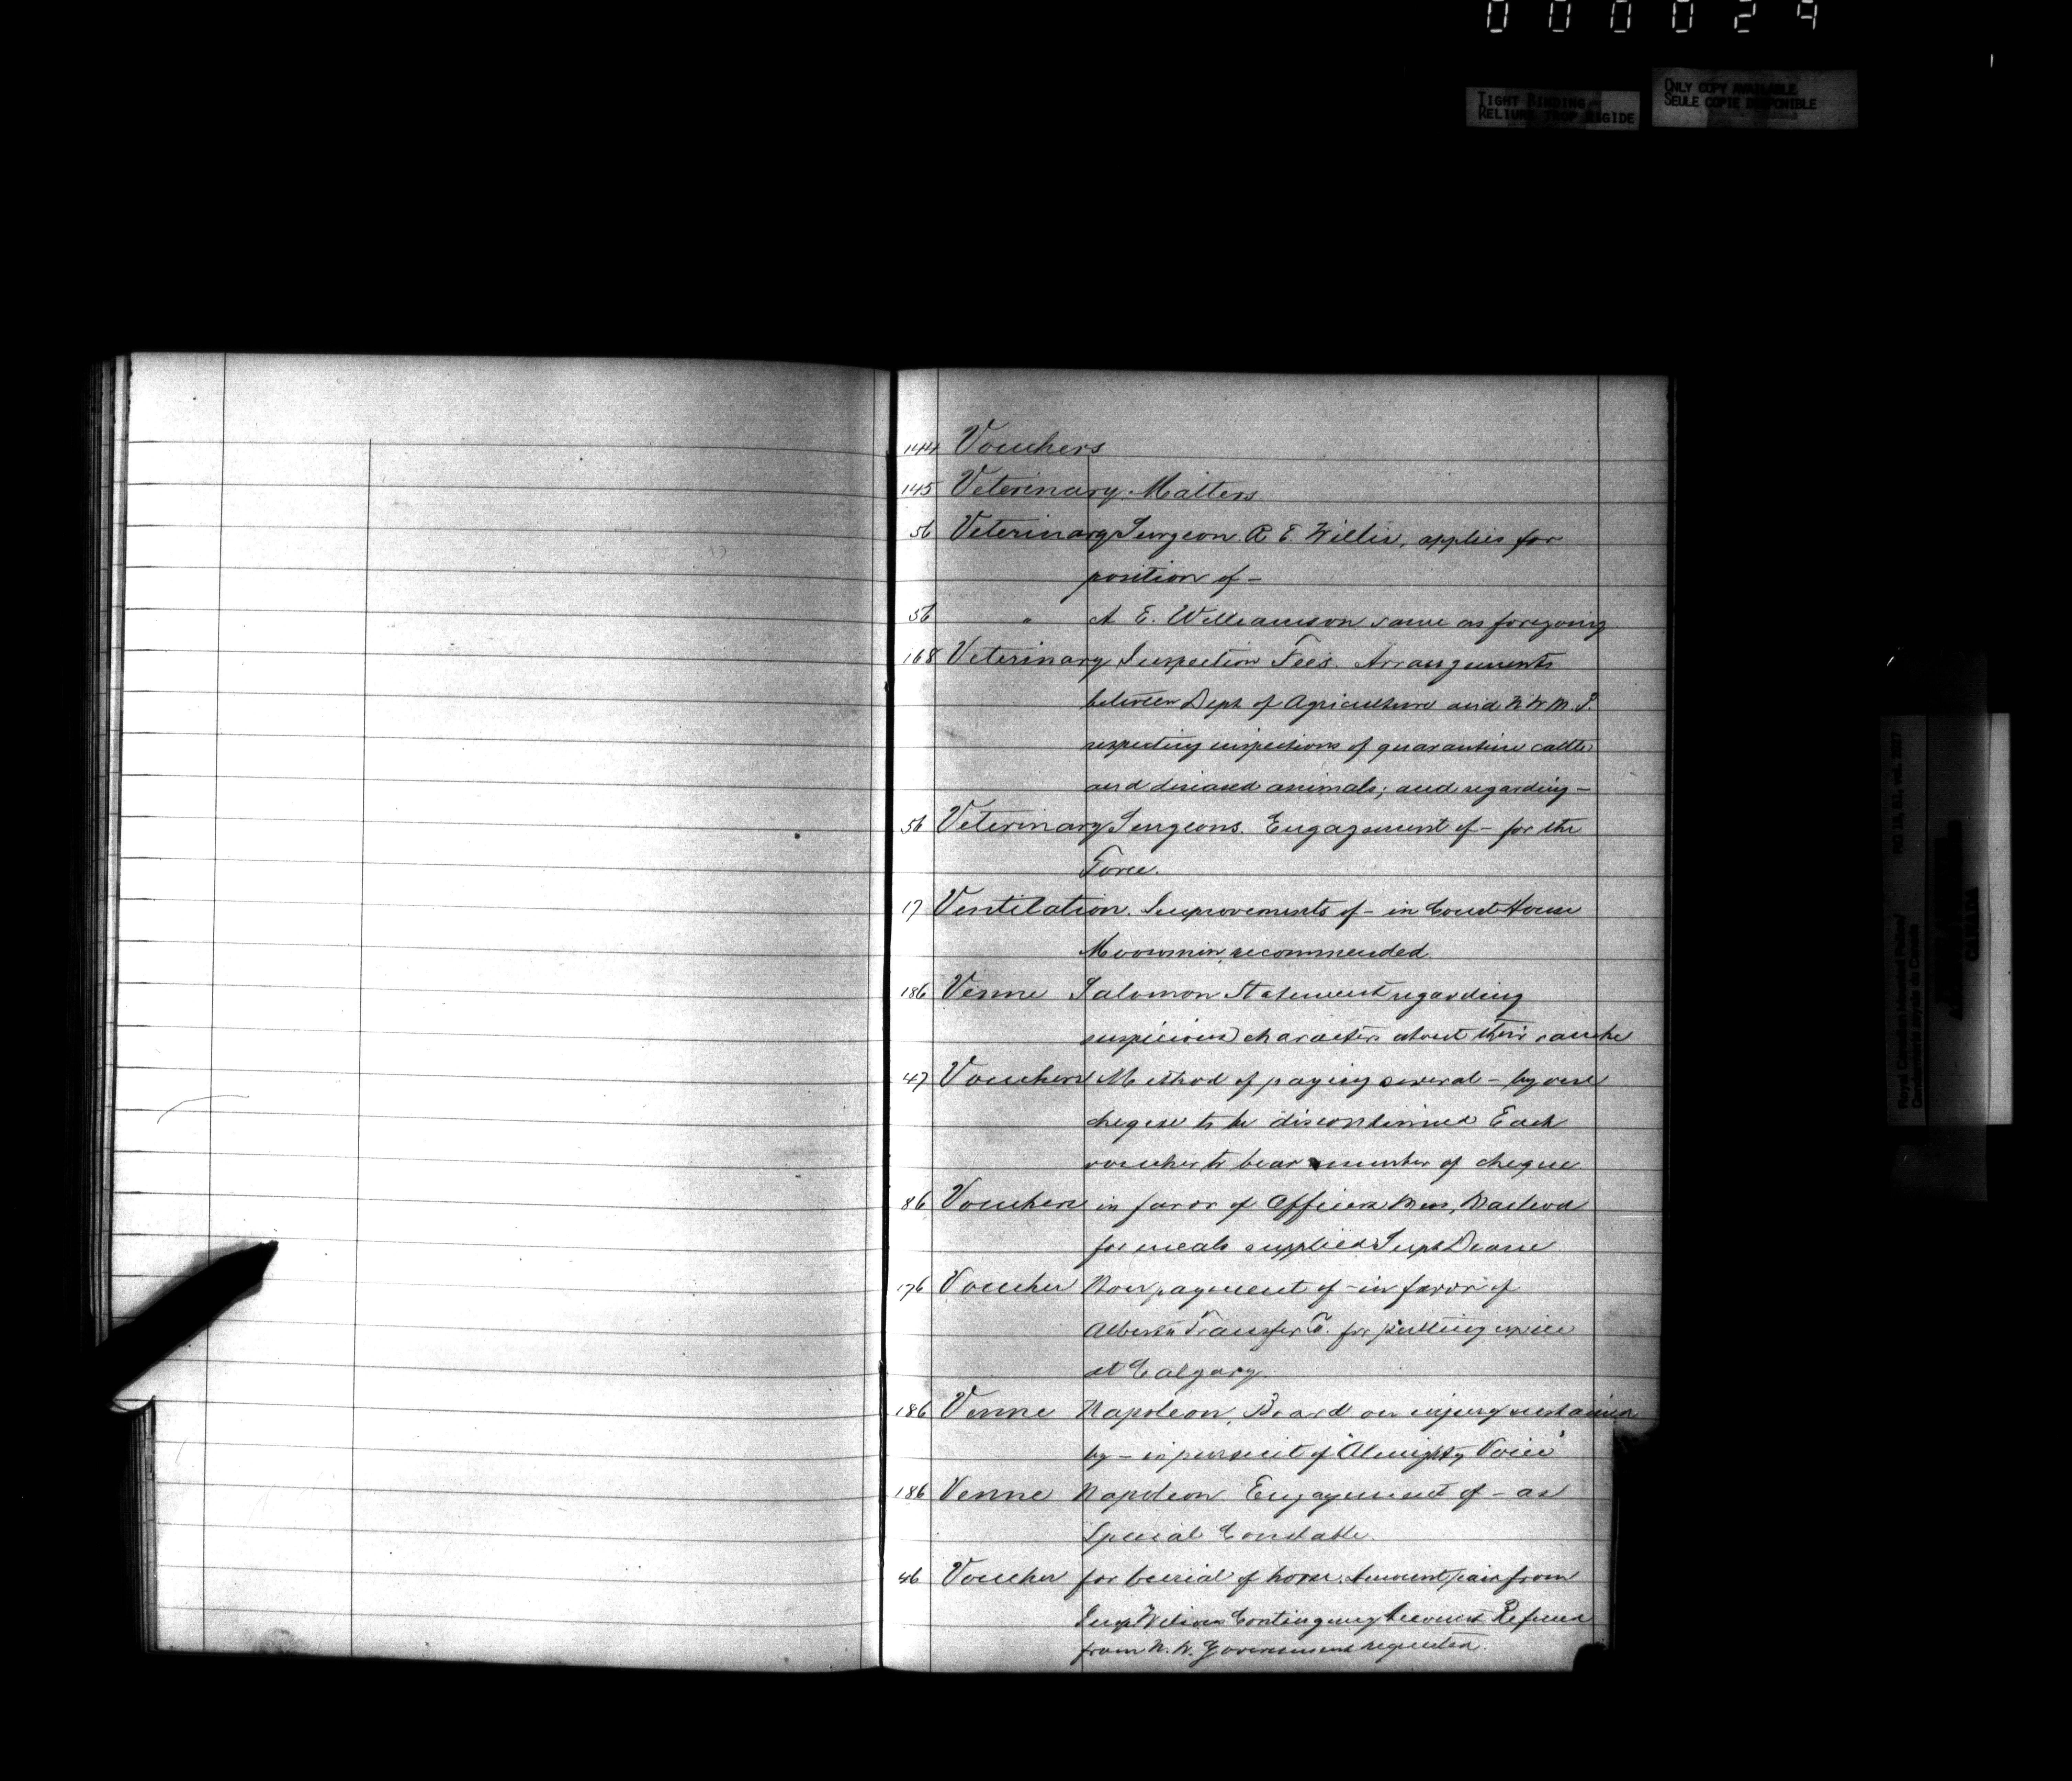 000029
TIGHT BINDING
RELIURE TROP RIGIDE
ONLY COPY AVAILABLE
SEULE COPIE DISPONIBLE
144 Vouchers
145 Veterinary Matters
56 Veterinary Surgeon R E. Willis, applies for
position of -
56 " A E. Williamson same as foregoing
168 Veterinary Inspection Fees. Arrangements
between Dept of Agriculture and N W M. P.
respecting inspections of quarantine cattle
and diseased animals; and regarding -
56 Veterinary Surgeons. Engagement of - for the
Force.
17 Ventilation. Improvements of - in Court House
Moosomin, recommended.
186 Venne Salomon Statement regarding
suspicious characters about their ranche
47 Vouchers Method of paying several - by one
cheque to be discontinued Each
voucher to bear number of cheque.
86 Vouchers in favor of Officers Mess, Macleod
for meals supplied Supt Deane
176 Voucher Non payment of - in favor of
Alberta Transfer Co. for putting up ice
at Calgary.
186 Venne Napoleon, Board on injury sustained
by - in pursuit of "Almighty Voice"
186 Venne Napoleon Engagement of - as
Special Constable.
46 Voucher for burial of horse. Amount paid from
Insp. Wilson Contingency Account Refund
from N. W. Government requested.
Royal Canadian Mounted Police/
Gendarmerie royale du Canada
RG 18, B1, vol. 2027
CANADA